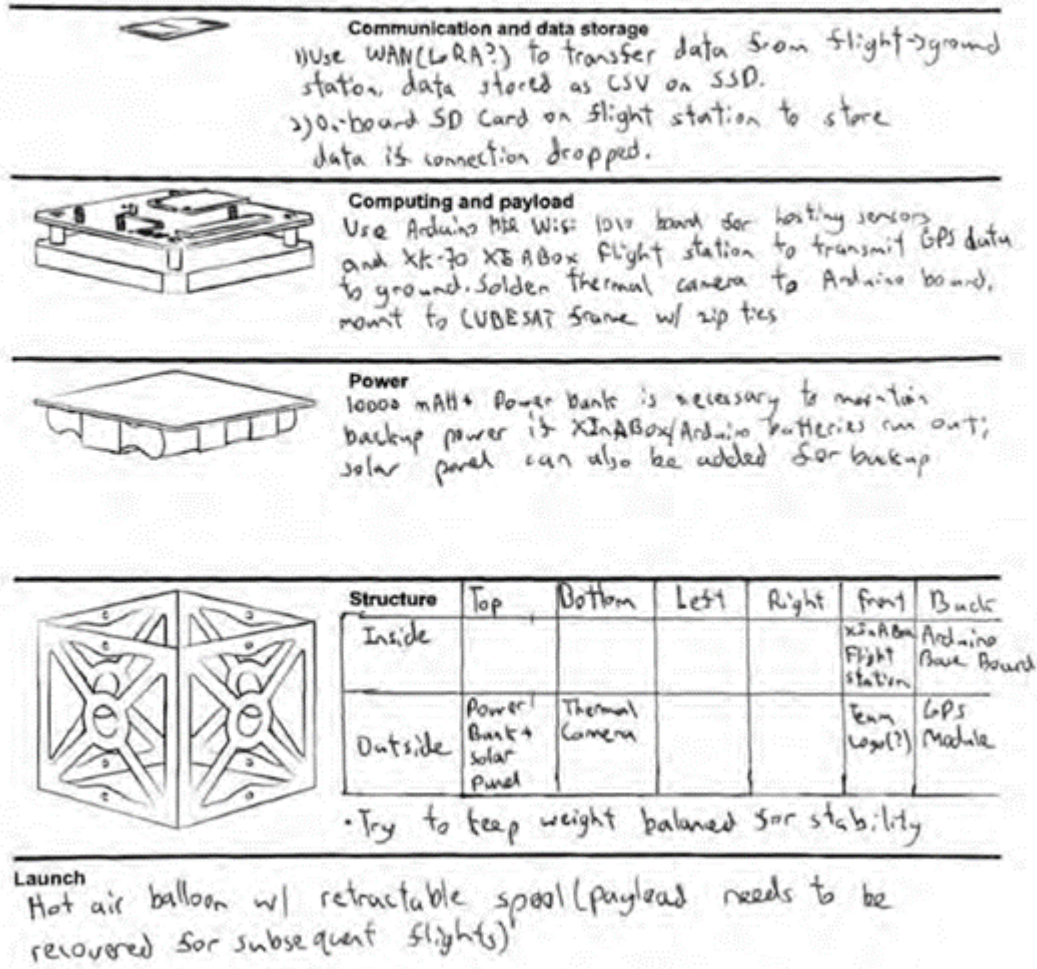 Communication and data storage
1) Use WAN (LoRA?) to transfer data from flight→ground
station, data stored as CSV on SSD.
2) On-board SD Card on flight station to store
data if connection dropped.
Computing and payload
Use Arduino MKR Wifi 1010 board for hosting sensors
and XK-70 XinABox Flight station to transmit GPS data
to ground. Solder thermal camera to Arduino board,
mount to CUBESAT frame w/ zip ties
Power
10000 mAH+ Power bank is necessary to maintain
backup power if XInABox/Arduino batteries run out;
solar panel can also be added for backup
Structure Top Bottom Left Right Front Back
Inside XInABox Flight station Arduino Base Board
Outside Power Bank + Solar Panel Thermal Camera Team Logo(?) GPS Module
• Try to keep weight balanced for stability
Launch
Hot air balloon w/ retractable spool (payload needs to be
recovered for subsequent flights)